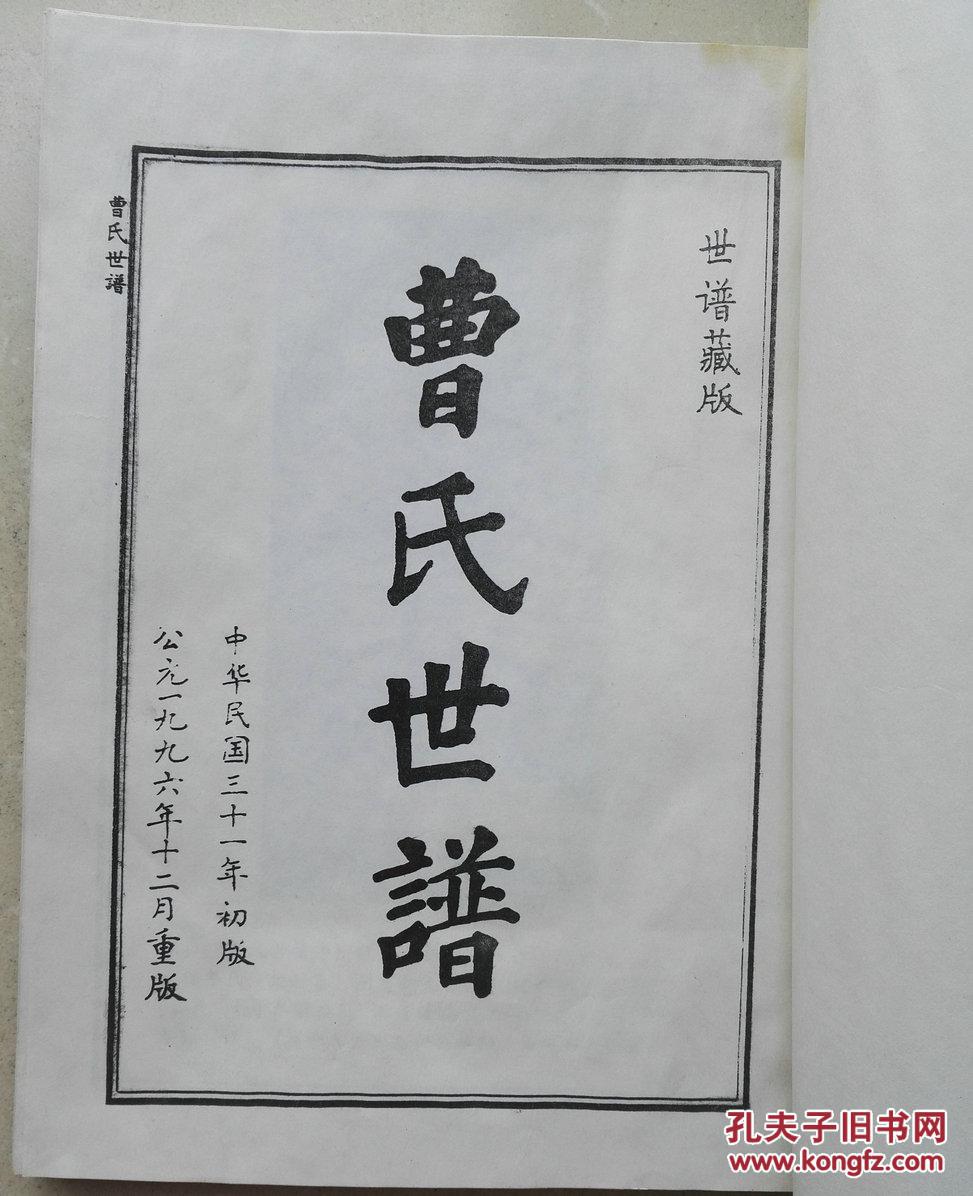 世谱藏版
曹氏世譜
中华民国三十一年初版
公元一九九六年十二月重版
曹氏世譜
孔夫子旧书网
www.kongfz.com